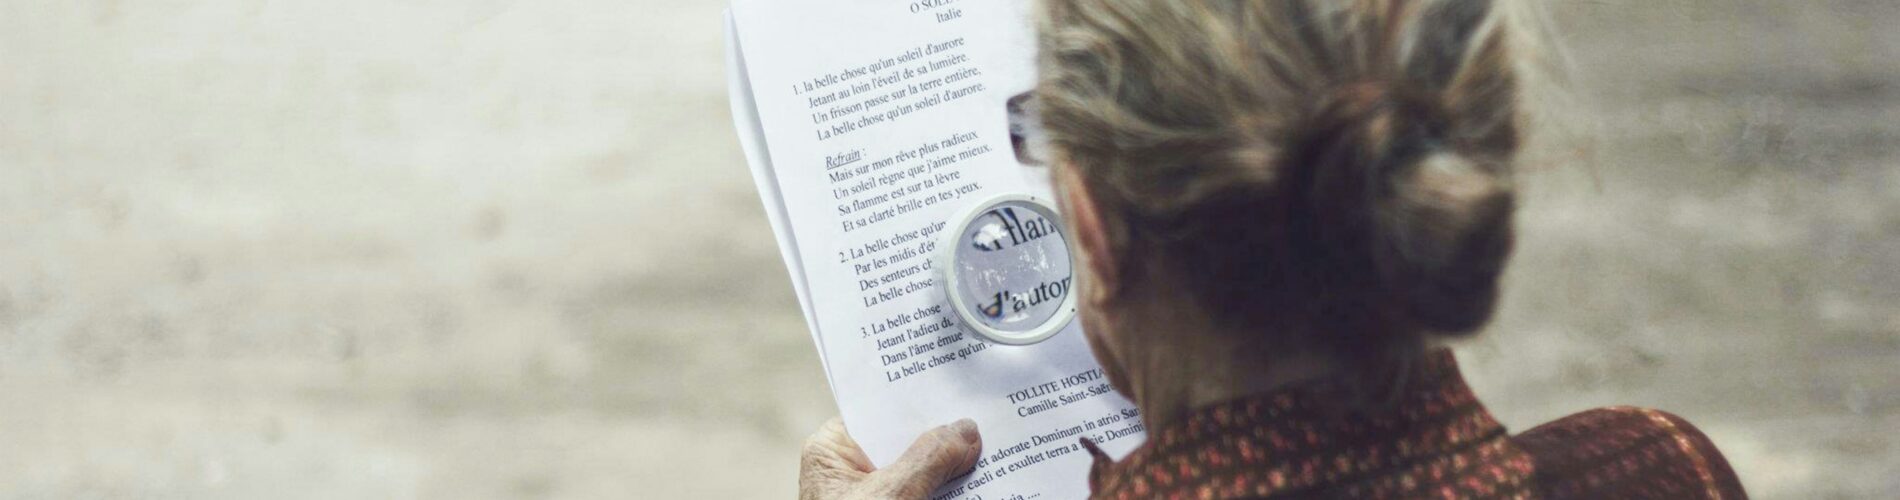 O SOLE
Italie
1. la belle chose qu'un soleil d'aurore
Jetant au loin l'éveil de sa lumière.
Un frisson passe sur la terre entière,
La belle chose qu'un soleil d'aurore.
Refrain :
Mais sur mon rêve plus radieux
Un soleil règne que j'aime mieux.
Sa flamme est sur ta lèvre
Et sa clarté brille en tes yeux.
2. La belle chose qu'un
Par les midis d'ét
Des senteurs ch
La belle chose
flam
d'auton
3. La belle chose
Jetant l'adieu du
Dans l'âme émue
La belle chose qu'un
TOLLITE HOSTIA
Camille Saint-Saën
et adorate Dominum in atrio San
entur caeli et exultet terra a Domini